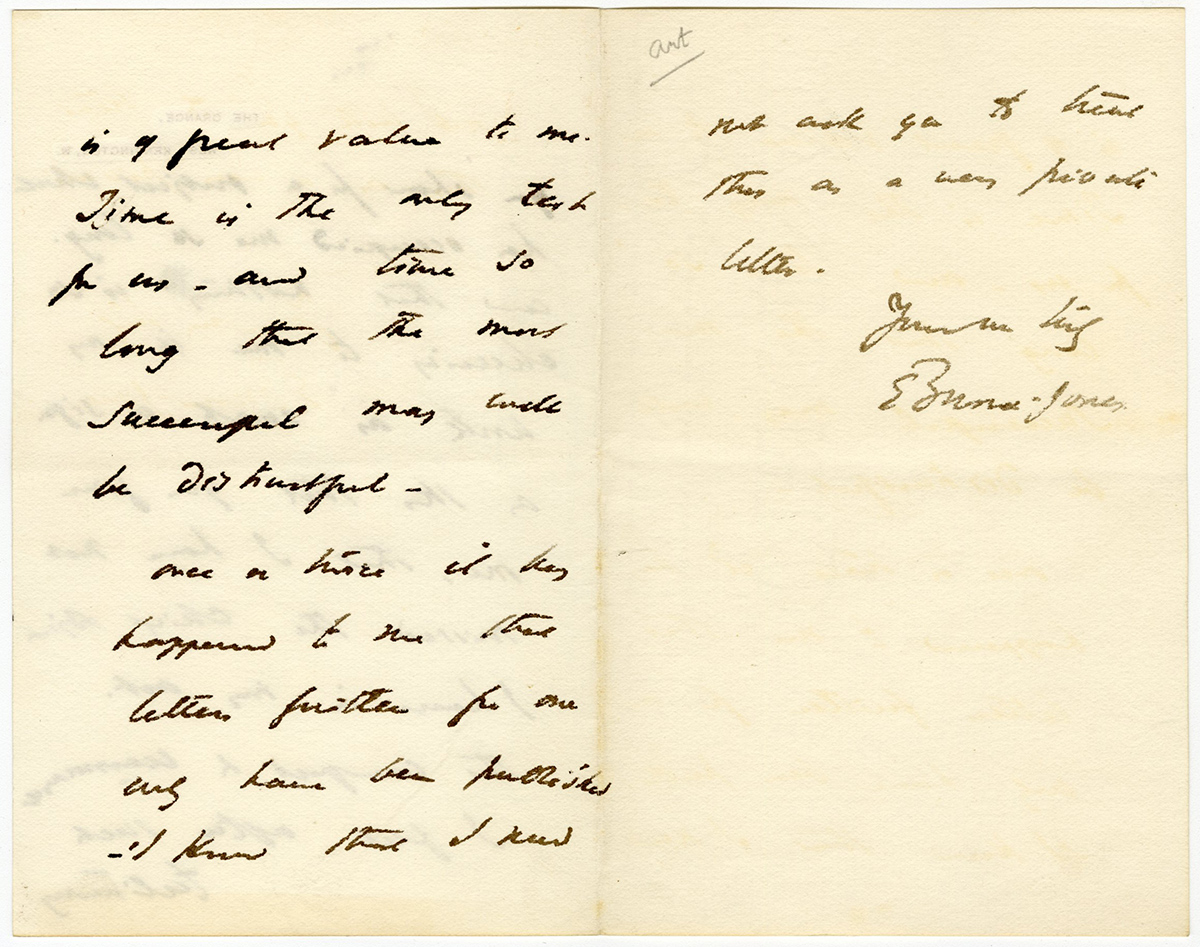 is of great value to me.
Time is the only test
for us - and time so
long that the most
successful may well
be distrustful -
once or twice it has
happened to me that
letters written for one
only have been published
- I know that I need
art
not ask you to treat
this as a very private
letter.
Yours
E Burne-Jones